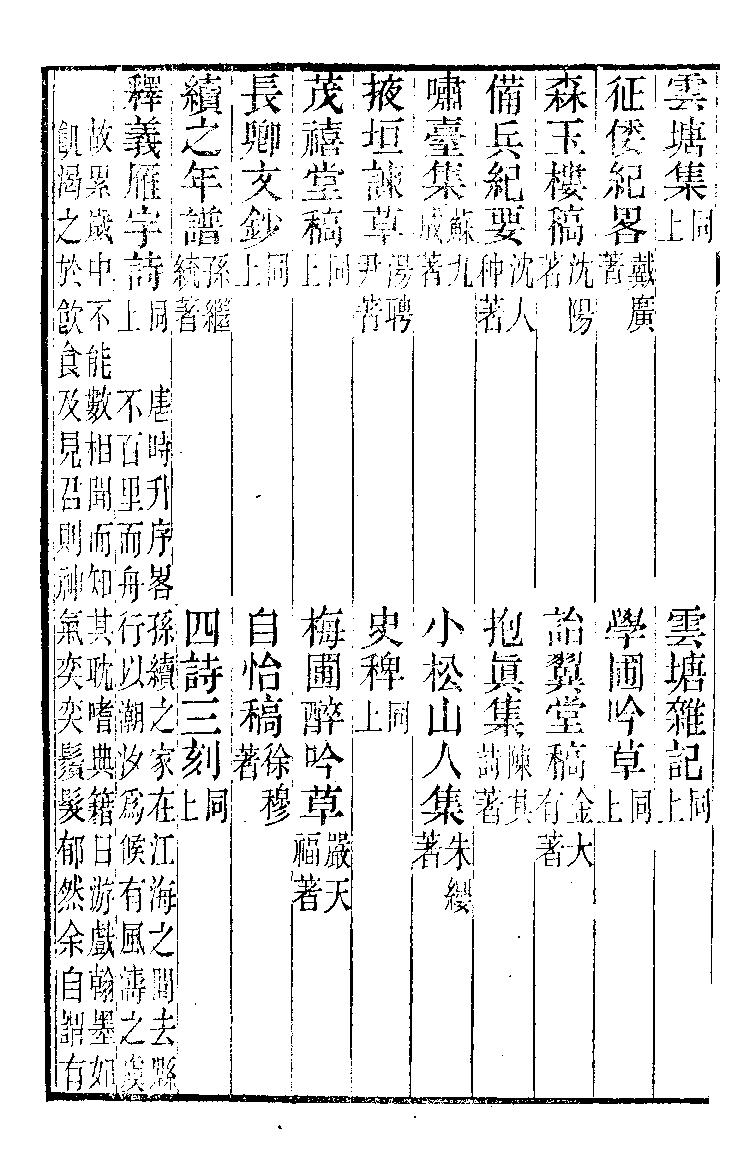 雲塘集同上　雲塘雜記同上
征倭紀畧戴廣著　學圃吟草同上
森玉樓稿沈陽著　詒翼堂稿金大有著
備兵紀要沈人种著　抱眞集陳其著
嘯臺集蘇九成著　小松山人集朱纓著
掖垣諫草湯聘尹著　史稗同上
茂禧堂稿同上　梅圃醉吟草嚴天福著
長卿文鈔同上　自怡稿徐穆著
續之年譜孫繼統著　四詩三刻同上
釋義雁字詩同上　唐時升序畧孫續之家在江海之間去縣
不百里而舟行以潮汐爲候有風濤之
故累歲中不能數相聞而知其耽嗜典籍日游戲翰墨如
飢渴之於飲食及見召則神氣奕奕鬚髮郁然余自謂有